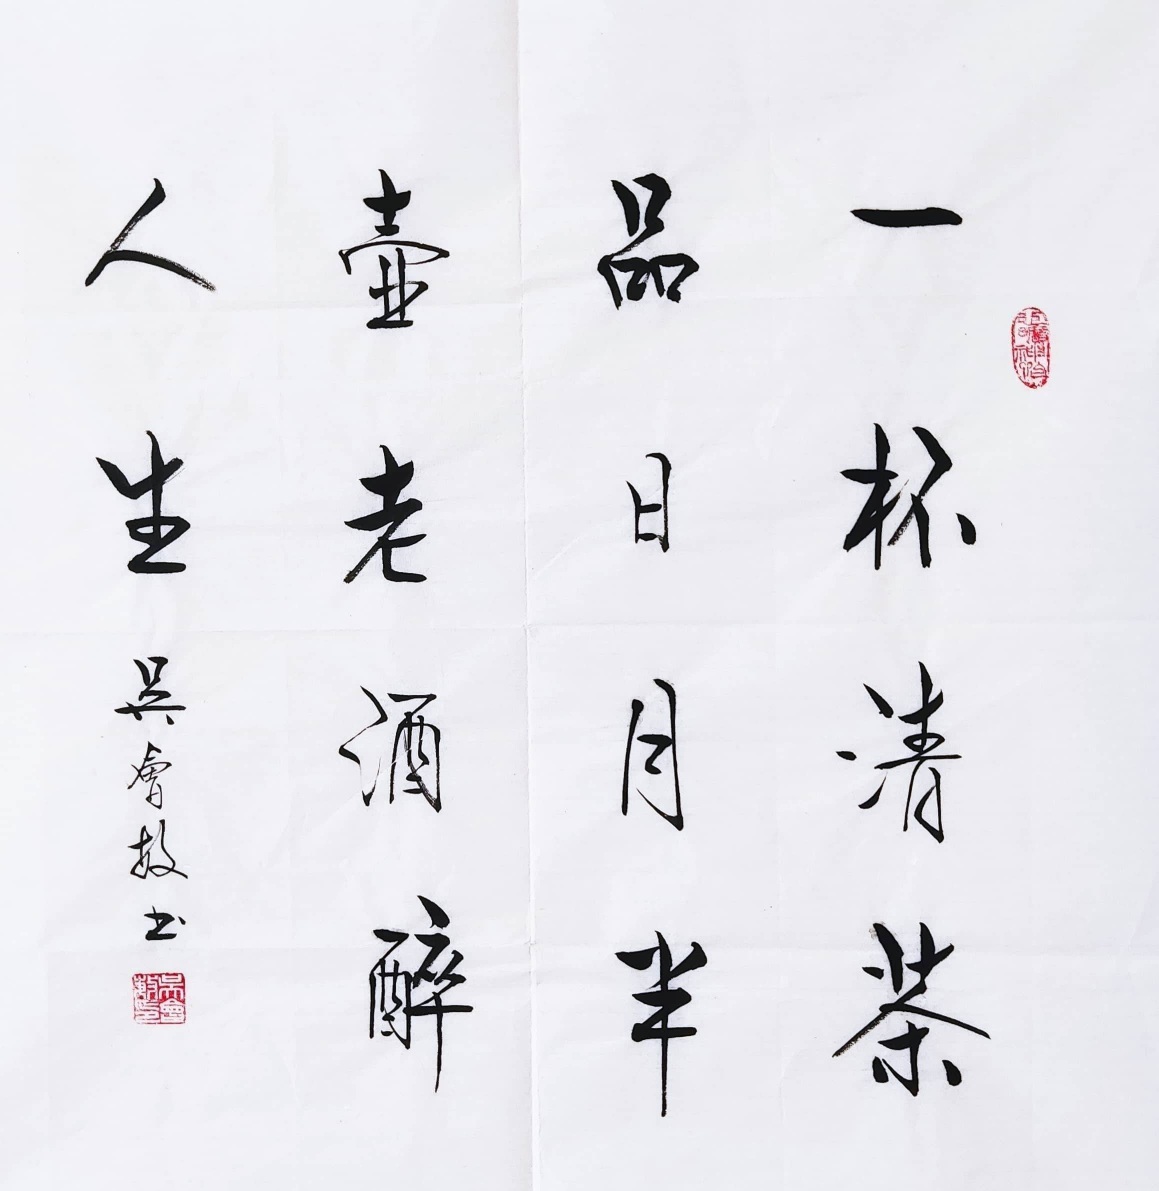 一杯清茶
品日月半
壶老酒醉
人生
吳會敖书